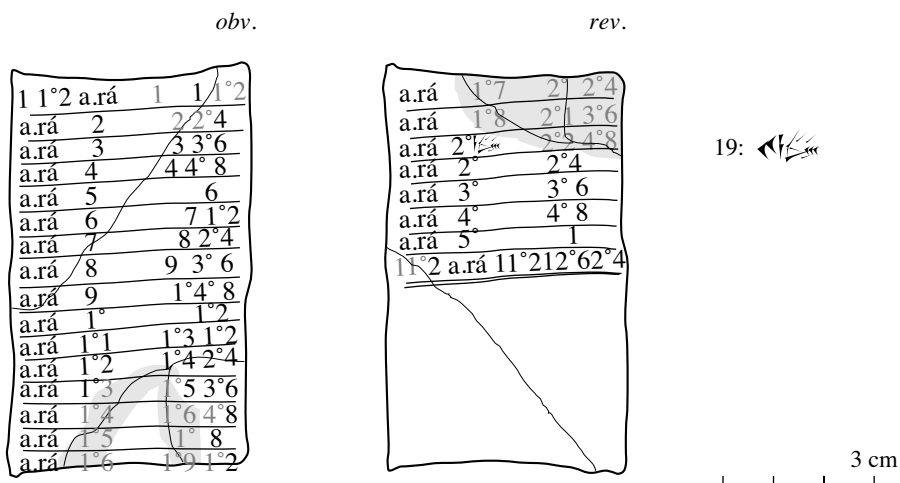 obv.
1 1°2 a.rá 1 1 1°2
a.rá 2 2 2°4
a.rá 3 3 3°6
a.rá 4 4 4° 8
a.rá 5 6
a.rá 6 7 1°2
a.rá 7 8 2°4
a.rá 8 9 3° 6
a.rá 9 1°4° 8
a.rá 1° 1°2
a.rá 1°1 1°3 1°2
a.rá 1°2 1°4 2°4
a.rá 1°3 1°5 3°6
a.rá 1°4 1°6 4°8
a.rá 1°5 1° 8
a.rá 1°6 1°9 1°2
rev.
a.rá 1°7 2° 2°4
a.rá 1°8 2°1 3°6
a.rá 2° 2°2 4°8
a.rá 2° 2°4
a.rá 3° 3° 6
a.rá 4° 4° 8
a.rá 5° 1
11°2 a.rá 11°212°62°4
19:
3 cm